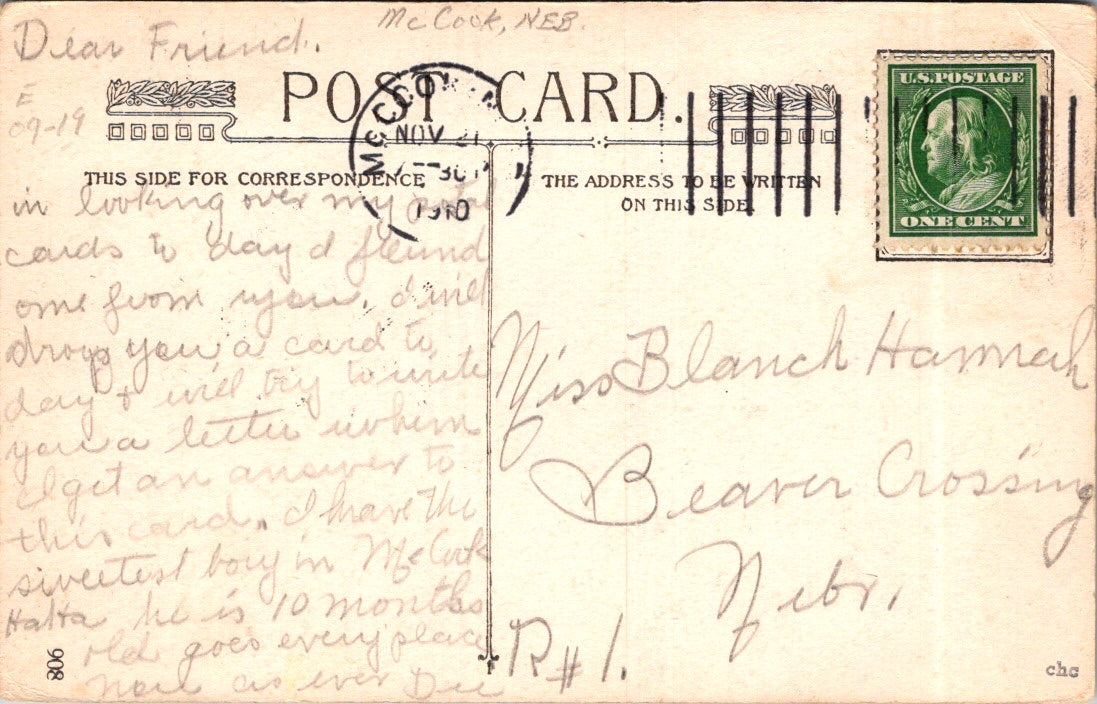 McCook, NEB.
Dear Friend.
E
09-19
POST CARD.
McCOOK
NOV 21
1910
THIS SIDE FOR CORRESPONDENCE
THE ADDRESS TO BE WRITTEN
ON THIS SIDE.
U.S. POSTAGE
ONE CENT
in looking over my postal
cards to day I found
one from you. I will
drop you a card to
day & will try to write
you a letter when
I get an answer to
this card. I have the
sweetest boy in McCook
HaHa he is 10 months
old goes every place
now as ever Dee
Miss Blanch Hannah
Beaver Crossing
Nebr.
R#1.
908
chc